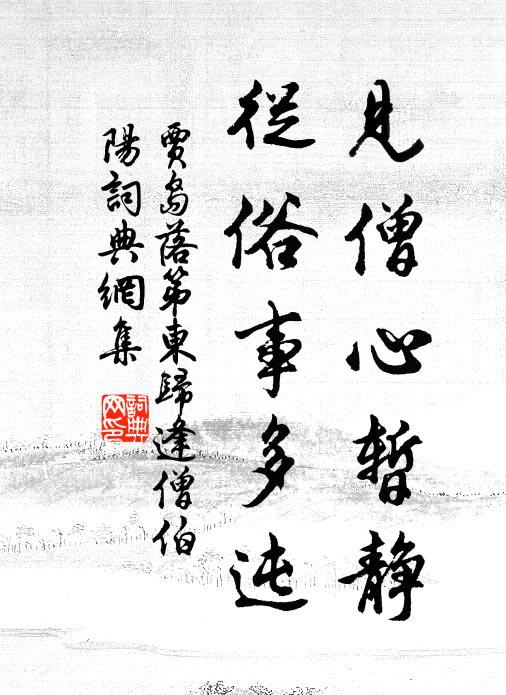 見僧心暫靜
從俗事多迍
賈島落第東歸逢僧伯
陽詞典網集
詞典網印